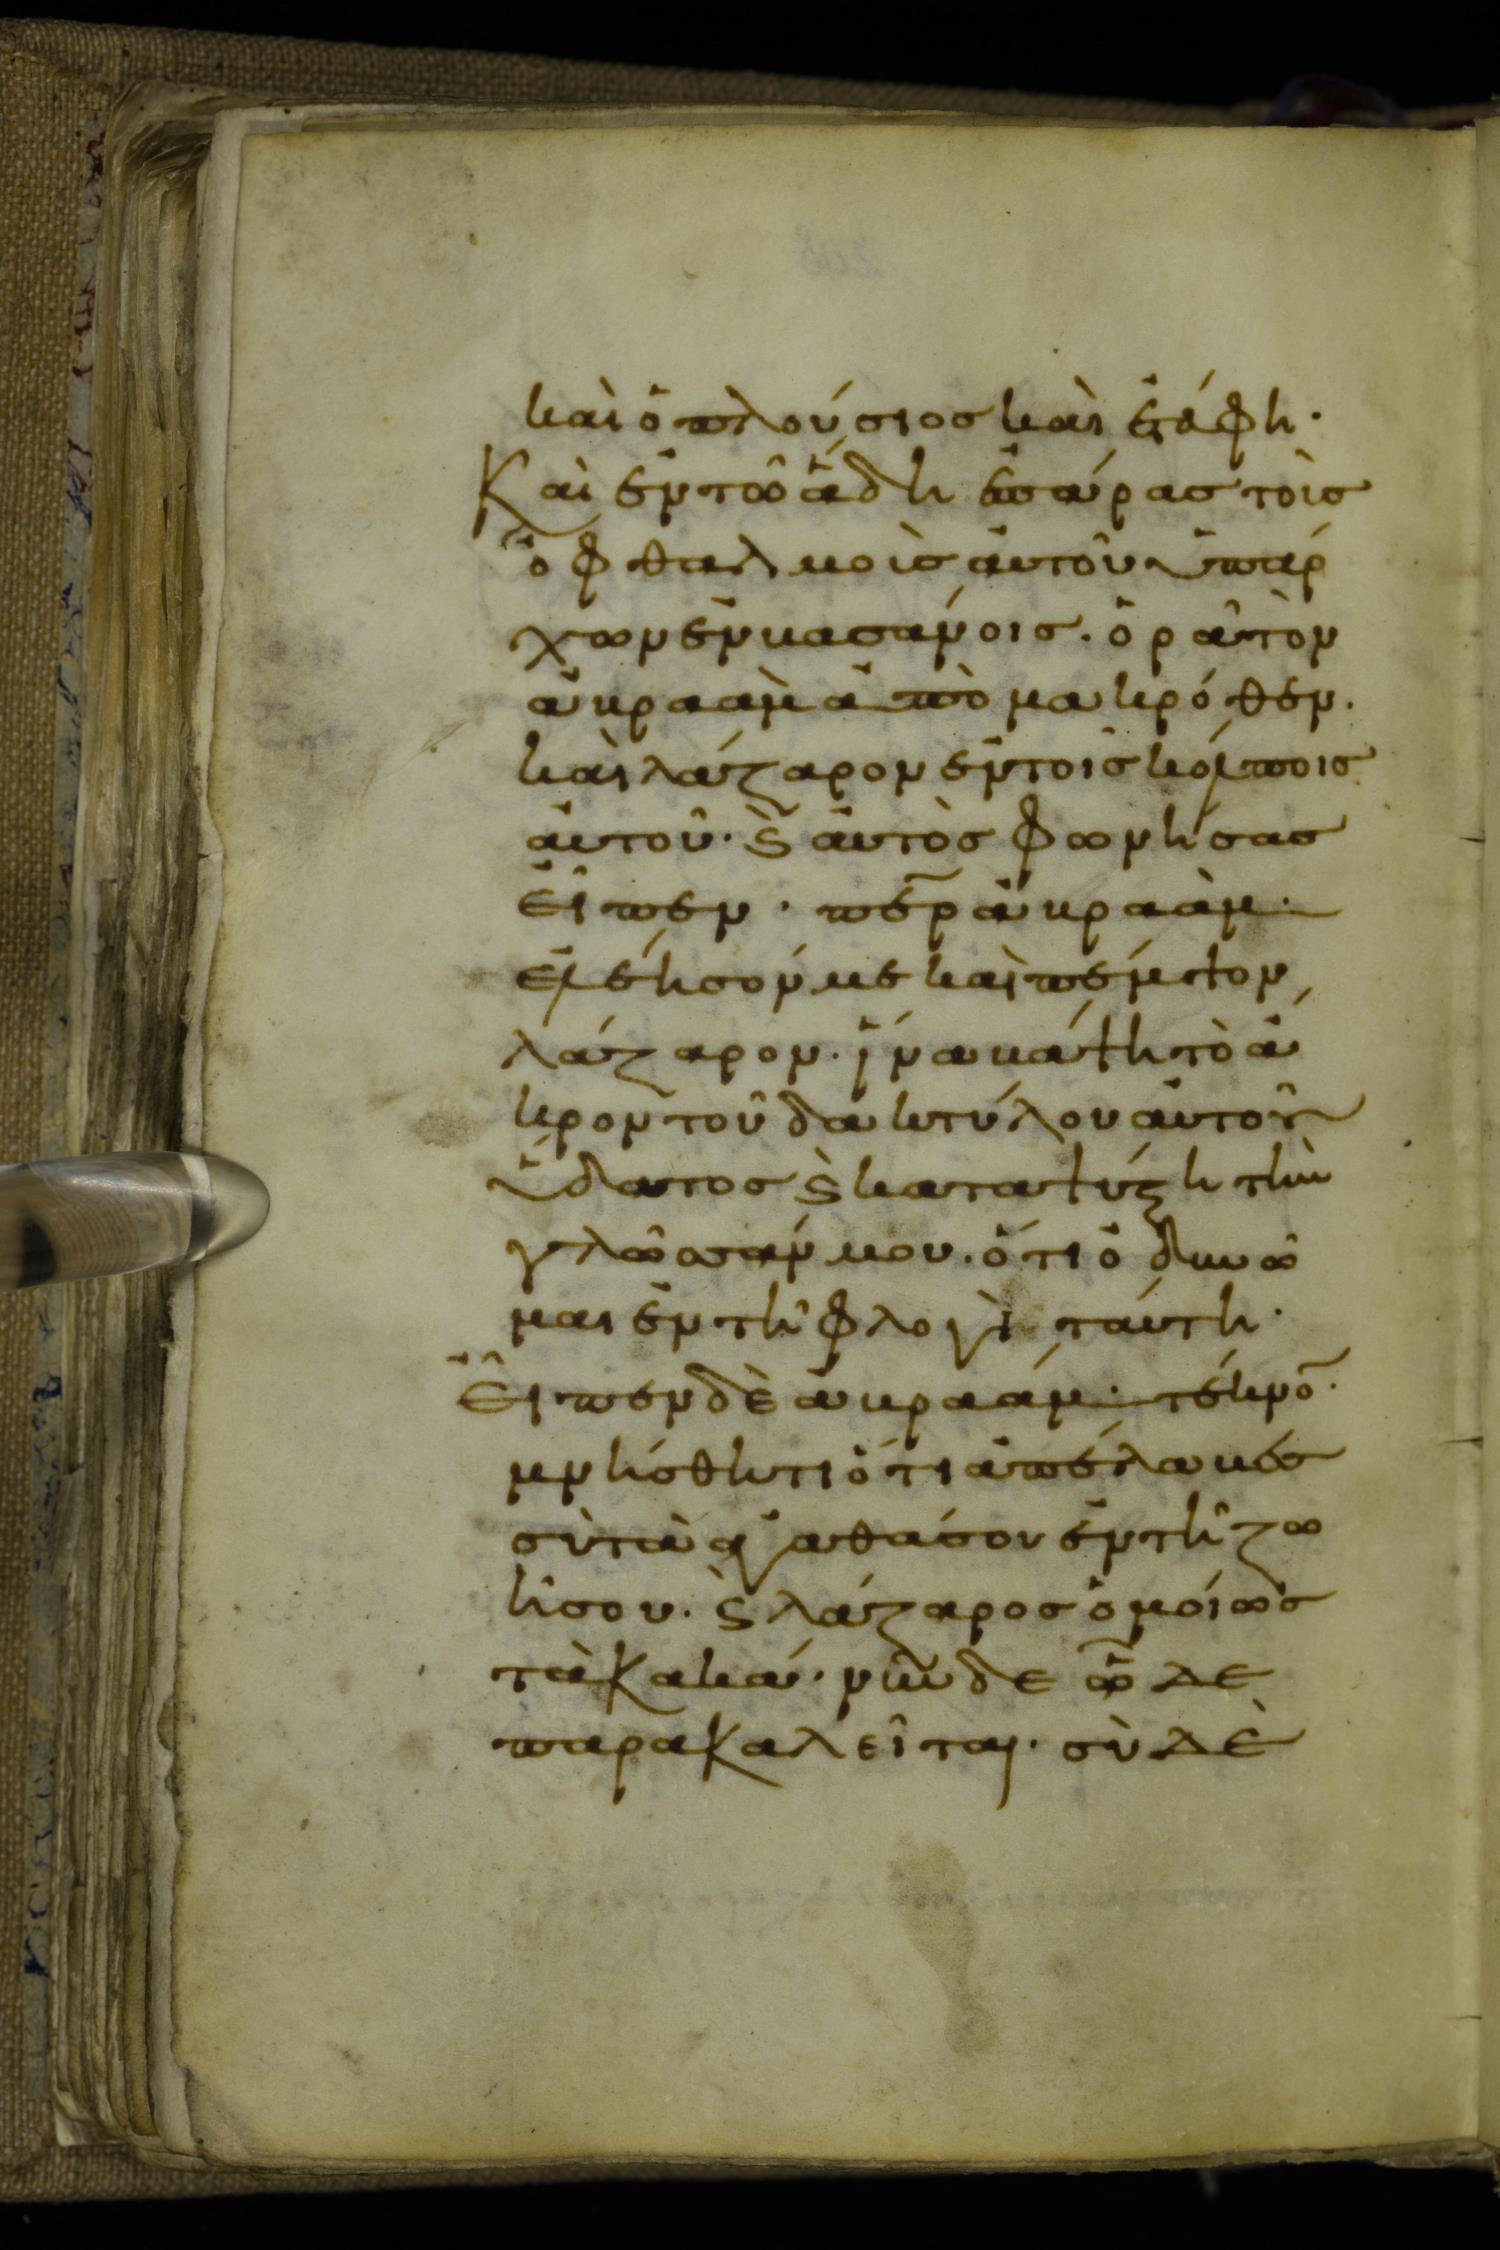 καὶ ὁ πλούσιος καὶ ἐτάφη·
Καὶ ἐν τῶ ἅδη ἐπάρας τοὺς
ὀφθαλμοὺς ἀυτοῦ ὑπάρ
χων ἐν βασάνοις· ὁρᾶ τὸν
ἀβραὰμ ἀπὸ μακρόθεν·
καὶ λάζαρον ἐν τοῖς κόλποις
ἀυτοῦ· ϛ̀ ἀυτὸς φωνήσας
ἐῖπεν· πε̅ρ ἀβραάμ·
ἐλέησόν με καὶ πέμψον
λάζαρον· ἵνα βάψη τὸ ἄ
κρον τοῦ δακτύλου ἀυτοῦ
ὕδατος ϛ̀ καταψύξη τὴν
γλῶσσάν μου· ὅτι ὀδυνῶ
μαι ἐν τῆ φλογὶ ταύτη·
Ἐῖπεν δὲ ἀβραάμ· τέκνο̅·
μνήσθητι ὅτι ἀπέλαβές
σὺ τὰ ἀγαθά σου ἐν τῆ ζω
ῆ σου· ϛ̀ λάζαρος ὁμοίως
τὰ κακά· νῦν δὲ ὧδε
παρακαλεῖται· σὺ δὲ